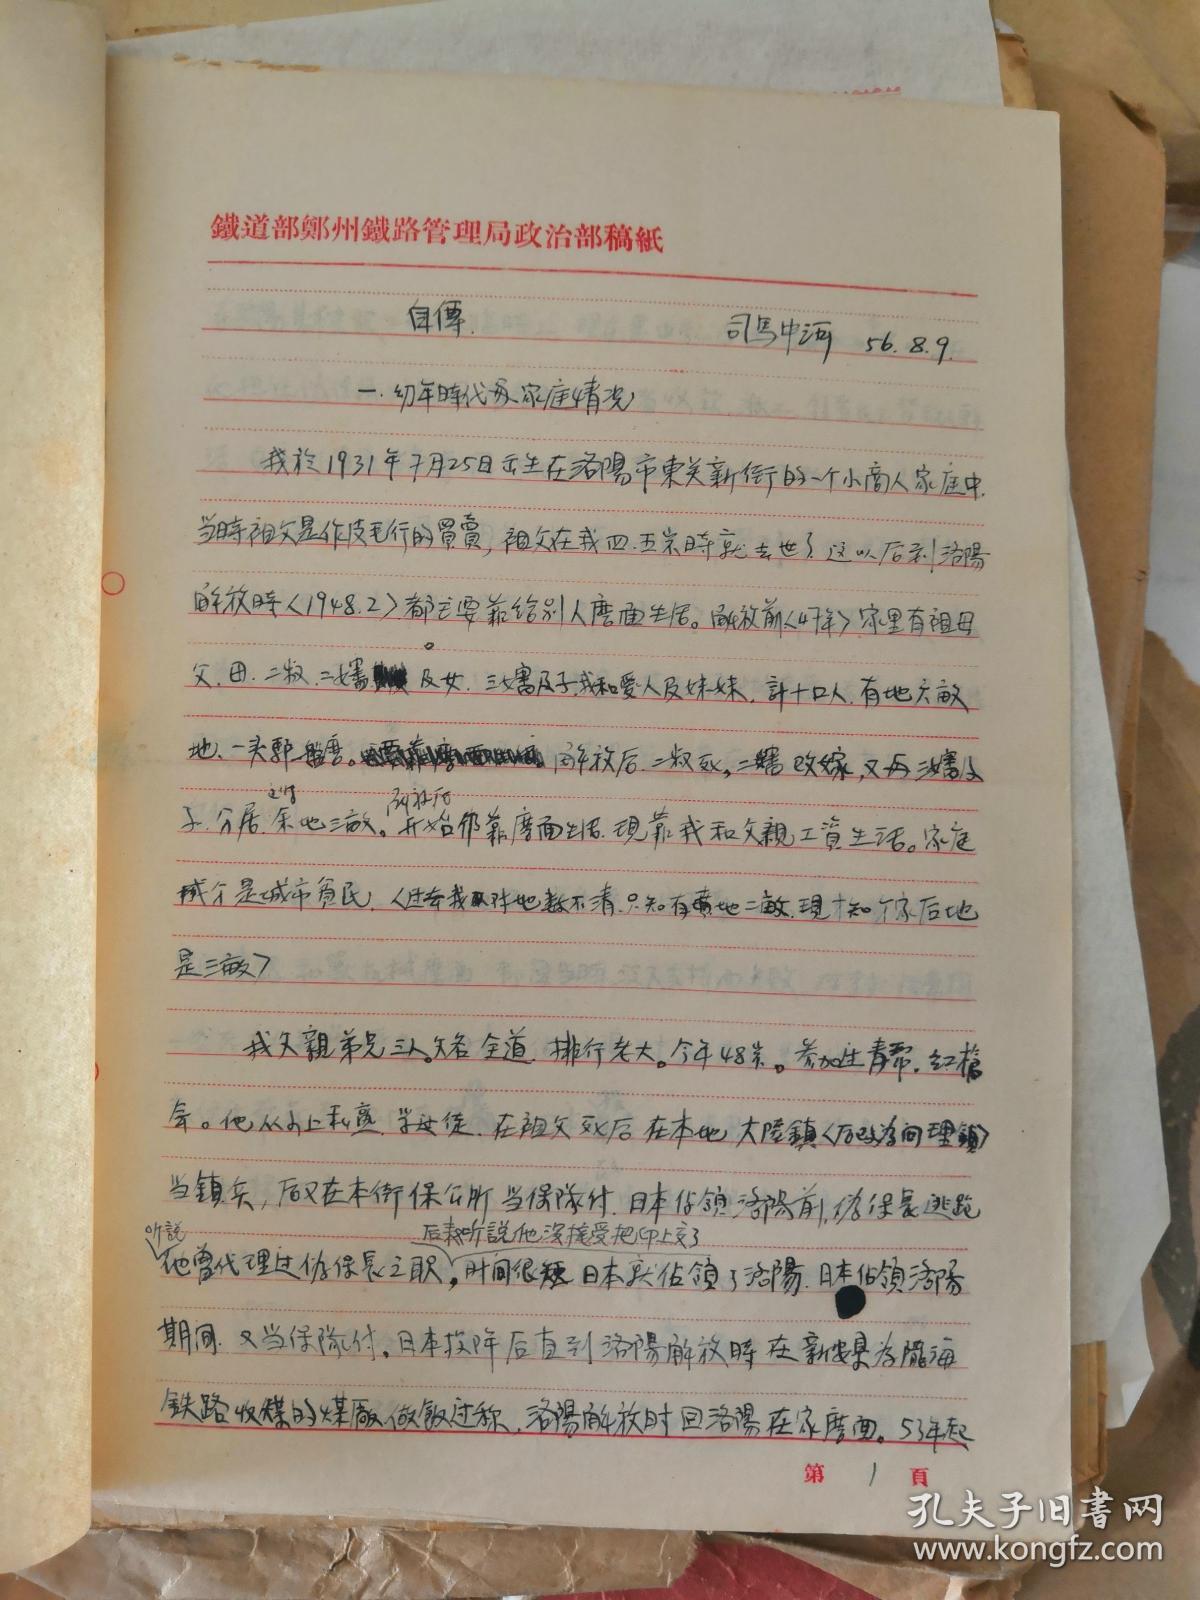 鐵道部鄭州鐵路管理局政治部稿紙
自傳.
司馬中河 56.8.9.
一.幼年時代及家庭情况
我於1931年7月25日出生在洛陽市東关新街的一个小商人家庭中.
当時祖父是作皮毛行的買賣,祖父在我四.五岁時就去世了.这以后到洛陽
解放時<1948.2>都主要靠给别人磨面生活。解放前<47年>家里有祖母
父.母.二叔.二嬸 及女.三嬸及子,我和爱人及妹妹.計十口人.有地六畝
地、一头驴 磨。 解放后.二叔死,二嬸改嫁,又与三嬸及
子.分居.余地三畝。开始仍靠磨面生活.現靠我和父親工資生活。家庭
解放后
成分是城市貧民.<过去我 对地数不清.只知有賣地二畝.現才知分家后地
是三畝>
我父親弟兄三人。父名全道.排行老大。今年48岁。参加过青帮.紅槍
会。他从小上私塾.学徒.在祖父死后在本地大陸鎮<后改为同理鎮>
当鎮兵,后又在本街保公所当保隊付.日本佔領洛陽前,伪保長逃跑
听説 后来听説他没接受把印上交了
他曾代理过伪保長之职,时间很短日本就佔領了洛陽.日本佔領洛陽
期间.又当保隊付.日本投降后直到洛陽解放時在新安县为隴海
鉄路收煤的煤廠做飯过称.洛陽解放时回洛陽在家磨面。53年起
第 1 頁
孔夫子旧書网
www.kongfz.com